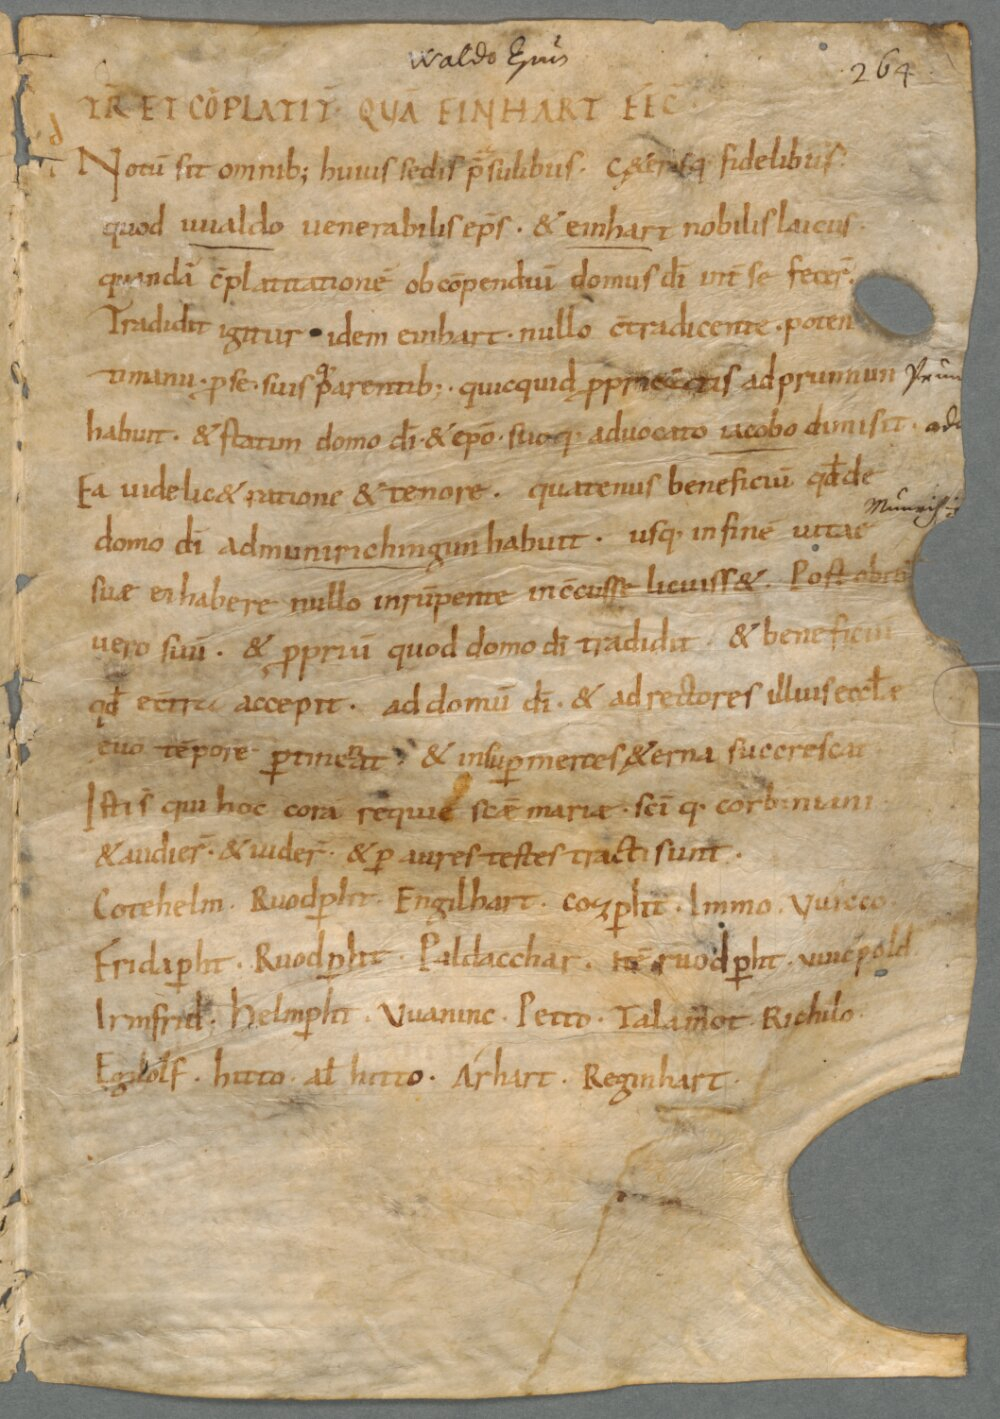 Waldo Epũs
264
TR̄ ET CŌPLATIT̄ · QUĀ EINHART FEC̄ ·
Notū sit omnib; huius sedis p̄sulibus · fidelibus ·
quod uualdo uenerabilis ep̄s · & einhart nobilis laicus ·
quandā c̄platitationē ob cōpendiū domus dī int̄ se fecer̄ ·
Tradidit igitur idem einhart · nullo c̄tradicente · poten
timanu · p se · suis parentib; · quicquid ad prunnun
habuit · & statim domo dī · & ep̄o · suoq· aduocato iacobo dimisit ·
Ea uidelic& ratione & tenore · quatenus beneficiū qđ de
domo dī ad munirichingun habuit · usq· in finē uitae
suae ei habere nullo inrūpente licuiss& · Post obitū
uero suū · & ppriū quod domo dī tradidit · & beneficiū
qđ accepit · ad domū dī · & ad rectores illius eccl̄e
euo tēpore & insup merces &erna succrescat
Isti s̄ qui hoc corā requie scāe mariae · sc̄i q· corbiniani ·
& audier̄ · & uider̄ · & p aures testes tracti sunt ·
Cotehelm · Ruodpht · Engilhart · cozpht · Immo ·
Fridapht · Ruodpht · Paldacchar · itē ruodpht ·
Irmfrid · Helmpht · Vuaninc · Petto · Talamot · Richilo ·
Egilolf · hitto · al hitto · Arhart · Reginhart ·